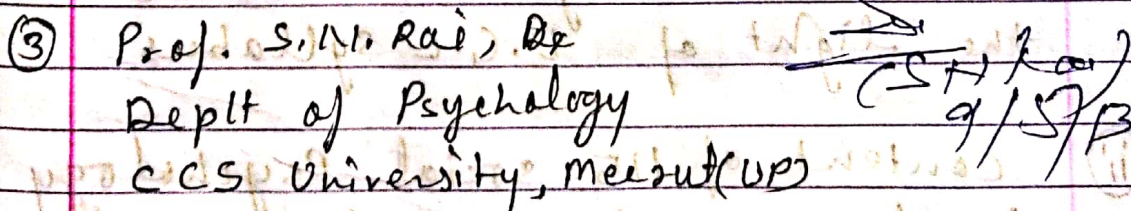 ③ Prof. S.N. Rai, De
Deptt of Psychology
CCS University, Meerut (UP)
(SN Rai)
9/5/13